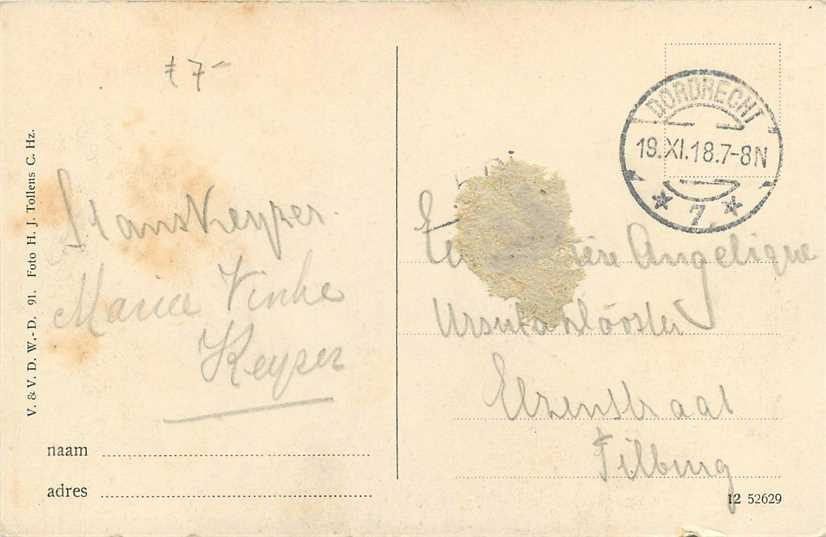 ƒ 7-
V. & V. D. W.-D. 91. Foto H. J. Tollens C. Hz.
Maria Vinke
Keyper
naam
adres
DORDRECHT
19.XI.18.7-8N
* 7 *
Angelique
Ursulaklooster
Elzenstraat
Tilburg
12 52629